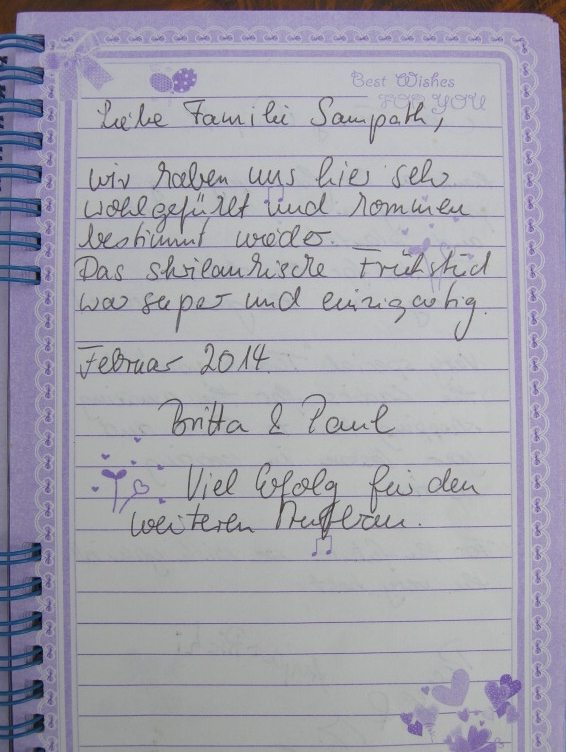 Best Wishes
FOR YOU
Liebe Familie Sampath,
wir haben uns hier sehr
wohlgefühlt und kommen
bestimmt wieder.
Das shrilankische Frühstück
war super und einzigartig.
Februar 2014
Britta & Paul
Viel Erfolg für den
weiteren Aufbau.